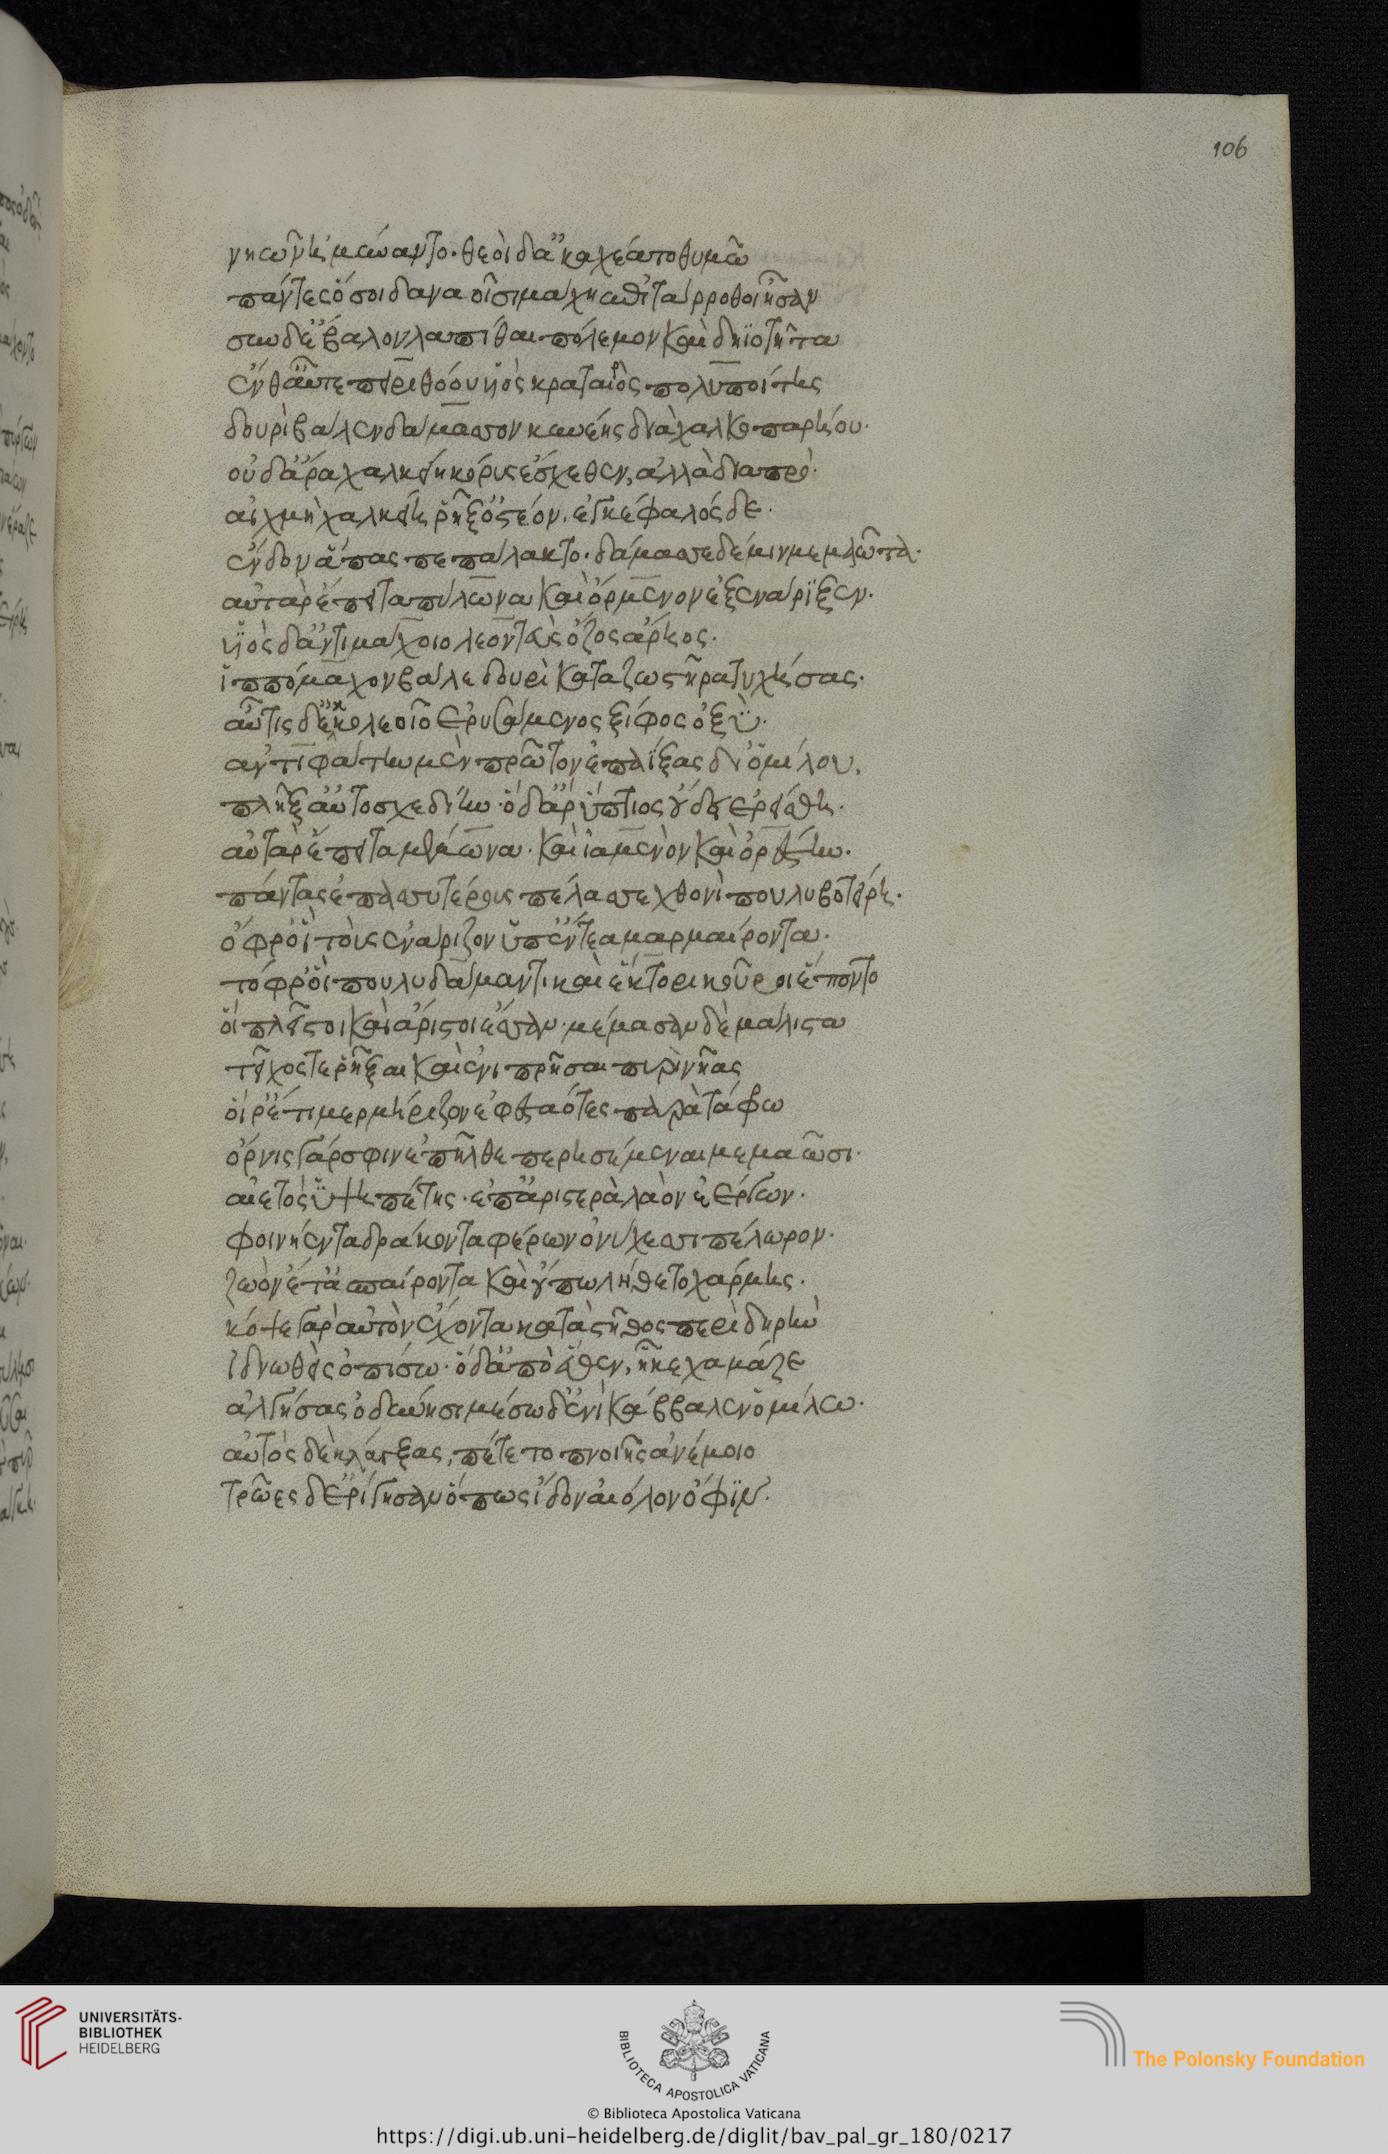 106
νηῶν ἠμύναντο· θεοὶ δ' ἀκαχείατο θυμῶ
πάντες ὅσοι δαναοῖσι μάχης ἐπιτάρροθοι ἦσαν
σὺν δ' ἔβαλον λαπίθαι πόλεμον καὶ δηϊοτῆτα
ἔνθ' αὖτε πειριθόου υἱὸς κραταιὸς πολυποίτης
δουρὶ βάλεν δάμασον κυνέης διὰ χαλκοπαρήου·
οὐδ' ἄρα χαλκείη κόρυς ἔσχεθεν, ἀλλὰ διαπρό·
αἰχμὴ χαλκείη ῥῆξ' ὀστέον, ἐγκέφαλος δὲ·
ἔνδον ἅπας πεπάλακτο· δάμασε δέ μιν μεμαῶτα·
αὐτὰρ ἔπειτα πύλωνα καὶ ὄρμενον ἐξενάριξεν·
υἱὸς δ' ἀντιμάχοιο λεοντεὺς ὄζος ἄρηος·
ἱππόμαχον βάλε δουρὶ κατὰ ζωστῆρα τυχήσας·
αὖτις δ' ἐκ κολεοῖο ἐρυσάμενος ξίφος ὀξὺ·
ἀντιφάτην μὲν πρῶτον ἐπαΐξας δι' ὁμίλου,
πλῆξ' αὐτοσχεδίην· ὁ δ' ἄρ' ὕπτιος οὔδει ἐρείσθη·
αὐτὰρ ἔπειτα μένωνα· καὶ ἰαμενὸν καὶ ὀρέστην·
πάντας ἐπασσυτέρους πέλασε χθονὶ πουλυβοτείρη·
ὄφρ' οἳ τοὺς ἐνάριζον ὑπ' ἔντεα μαρμαίροντα·
τόφρ' οἱ πουλυδάμαντι καὶ ἕκτορι κοῦροι ἕποντο
οἳ πλεῖστοι καὶ ἄριστοι ἔσαν· μέμασαν δὲ μάλιστα
τεῖχός τε ῥήξειν καὶ ἐνιπρῆσαι πυρὶ νῆας
οἵ ῥ' ἔτι μερμήριζον ἐφεσταότες παρὰ τάφρω
ὄρνις γάρ σφιν ἐπῆλθε περησέμεναι μεμαῶσι·
αἰετὸς ὑψιπέτης· ἐπ' ἀριστερὰ λαὸν ἐέργων·
φοινήεντα δράκοντα φέρων ὀνύχεσι πέλωρον·
ζωὸν ἔτ' ἀσπαίροντα καὶ οὔπω λήθετο χάρμης·
κόψε γὰρ αὐτὸν ἔχοντα κατὰ στῆθος περὶ δηρὴν
ἰδνωθεὶς ὀπίσω· ὁ δ' ἀπὸ ἕθεν, ἧκε χαμάζε
ἀλγήσας ὀδύνησι μέσω δ' ἐνὶ κάββαλεν ὁμίλω·
αὐτὸς δὲ κλάγξας, πέτετο πνοιῇς ἀνέμοιο
τρῶες δ' ἐρίγησαν ὅπως ἴδον αἰόλον ὄφιν·
UNIVERSITÄTS-
BIBLIOTHEK
HEIDELBERG
BIBLIOTECA APOSTOLICA VATICANA
The Polonsky Foundation
© Biblioteca Apostolica Vaticana
https://digi.ub.uni-heidelberg.de/diglit/bav_pal_gr_180/0217